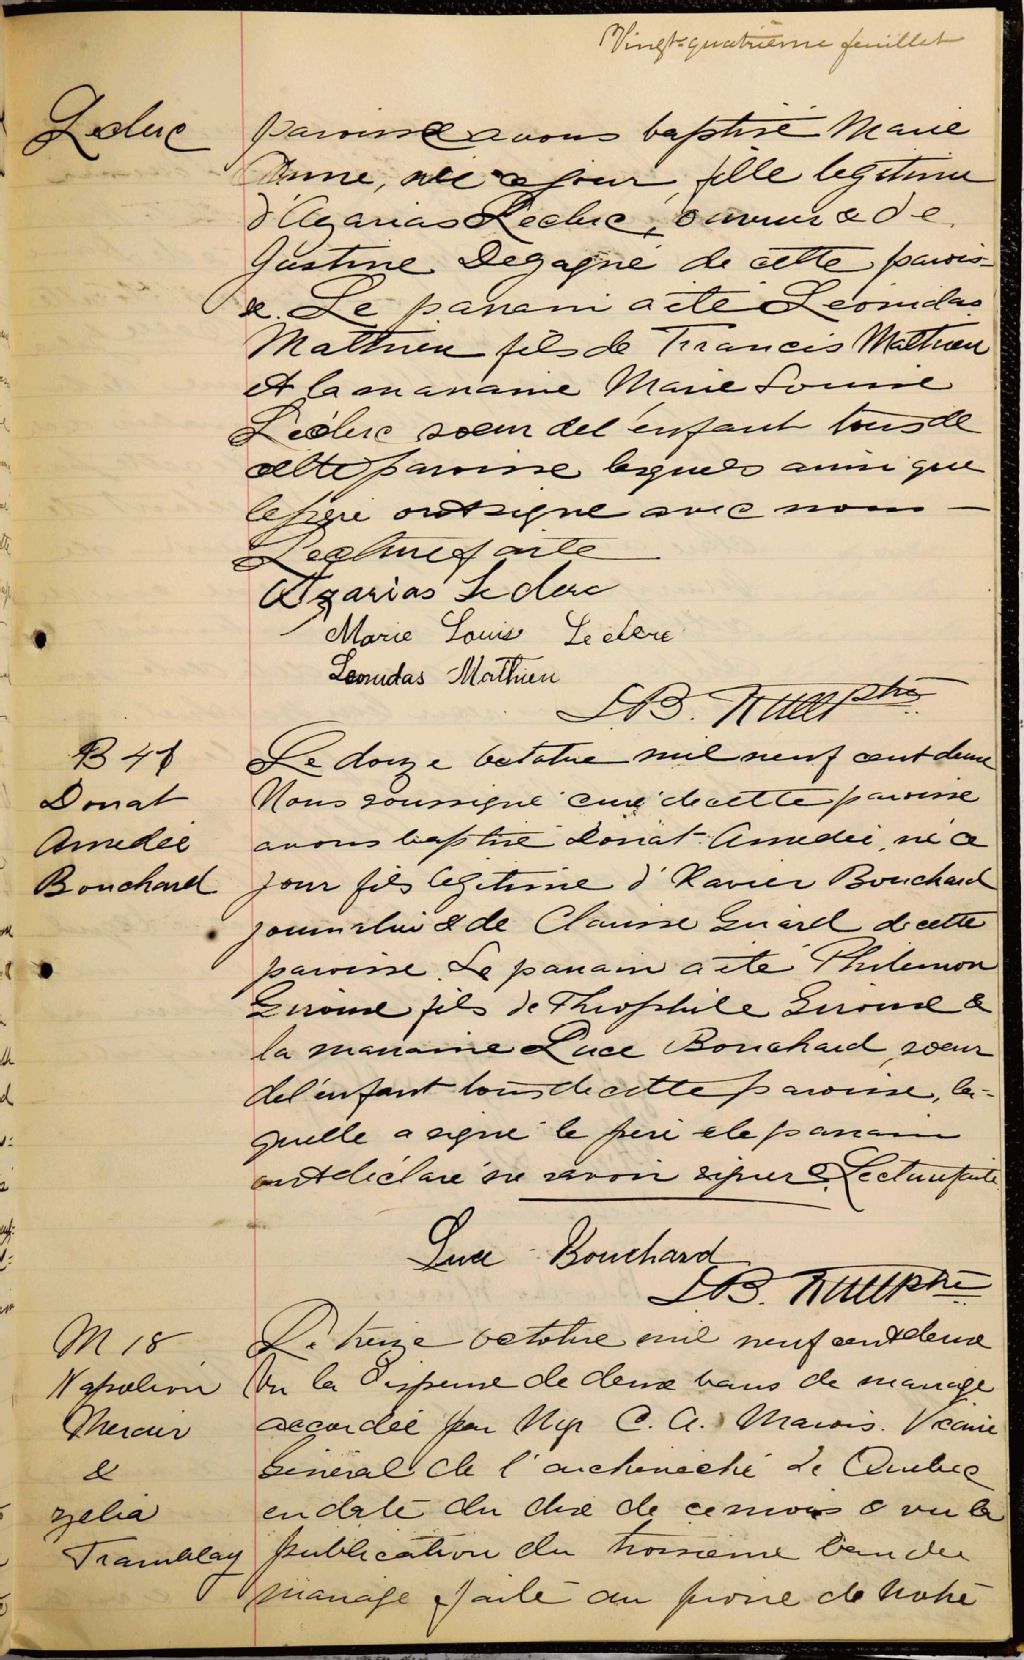 Vingt-quatrième feuillet
Leclerc
paroisse avons baptisé Marie
Anne, née ce jour, fille légitime
d'Azarias Leclerc, ouvrier & de
Justine Dégagné de cette parois-
se. Le parrain a été Léonidas
Mathieu fils de Francis Mathieu
et la marraine Marie Louise
Leclerc soeur de l'enfant tous de
cette paroisse lesquels ainsi que
le père ont signé avec nous —
Lecture faite
Azarias Leclerc
Marie Louise Leclerc
Leonidas Mathieu
J.B. ptre
B 48
Donat
Amedée
Bouchard
Le douze octobre mil neuf cent deux
Nous soussigné curé de cette paroisse
avons baptisé Donat Amedée, né ce
jour fils légitime d'Xavier Bouchard
journalier & de Clarisse Girard de cette
paroisse. Le parrain a été Philemon
Giroux fils de Théophile Giroux &
la marraine Luce Bouchard, soeur
de l'enfant tous de cette paroisse, la-
quelle a signé le père & le parrain
ont déclaré ne savoir signer. Lecture faite
Luce Bouchard
J.B. ptre
M 18
Napoléon
Mercier
&
Zelia
Tramblay
Le treize octobre mil neuf cent deux
Vu la dispense de deux bans de mariage
accordée par Mgr C. A. Marois. Vicaire
Général de l'archevêché de Québec
en date du dix de ce mois & vu la
publication du troisième ban de
mariage faite au prone de notre